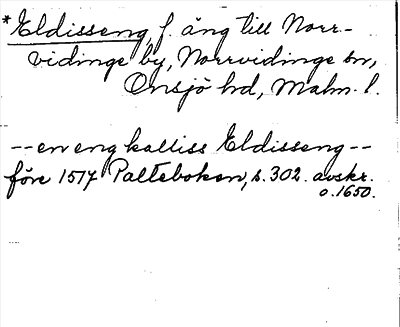 *Eldisseng, f. äng till Norr-
vidinge by, Norrvidinge sn,
Onsjö hd, Malm. l.
--en eng kalliss Eldisseng--
före 1514 Palteboken, s. 302. avskr.
o. 1650.